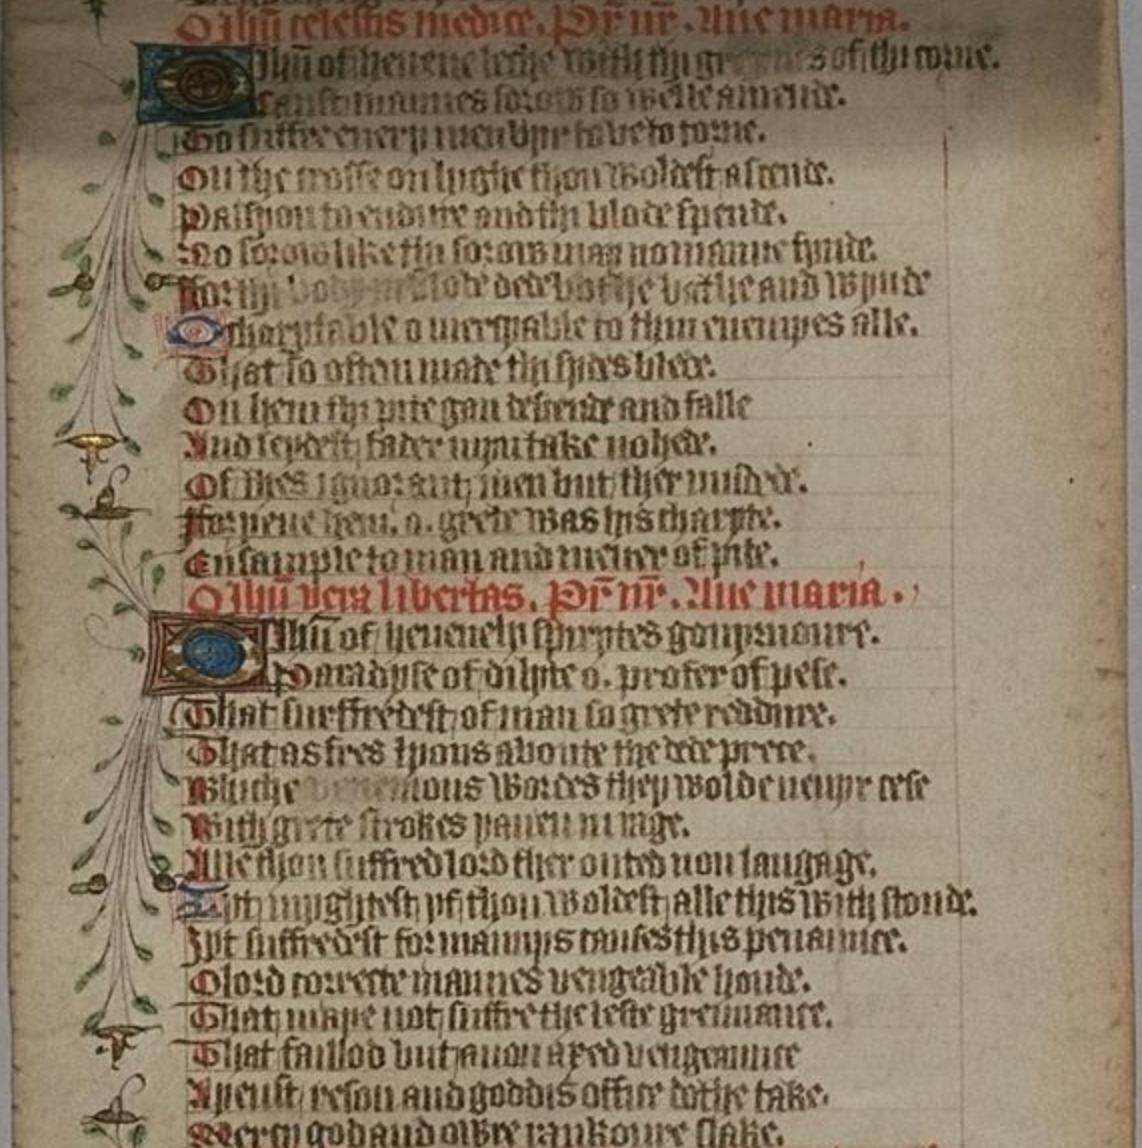 O Ihū celestis medice. Pr̄ nr̄. Aue maria.
O Ihū of heuene leche with thy greuys of thy corne.
Canst mannes sorow so welle amende.
To suffre euery menbyr to be to torne.
On the crosse on highe thou woldest ascende.
Passyon to endure and thy blode spende.
No sorow like thy sorow may no manne fynde.
For thy body blode dede bothe bathe and wynde
O charytable o mercyable to thyn enemyes alle.
That so often made thy sydes blede.
On hem thy pite gan descende and falle
And seydest fader myn take no hede.
Of thes ignorant men but ther mysdede.
Foryeue hem. o. grete was this charyte.
Ensample to man and merrer of pite.
O Ihū vera libertas. Pr̄ nr̄. Aue maria.
O Ihū of heuenely spyrytes gouernoure.
Paradyse of dilyte o. profer of pese.
That surffretest of man so grete reddure.
That as fres lyons aboute the dede prece.
Whiche venemous wordes they wolde neuyr cese
With grete strokes yauen in rage.
Alle thou suffred lord ther outed non langage.
Yit myghtest yf thou woldest alle this with stonde.
Yyt suffredest for mannys causes this penaunce.
O lord correcte mannes vengeable honde.
That maye not suffre the leste greuuance.
That faillod but anon axed vengeaunce
Ayeust reson and goddis office dothe take.
Mercy god and oure rankoure slake.